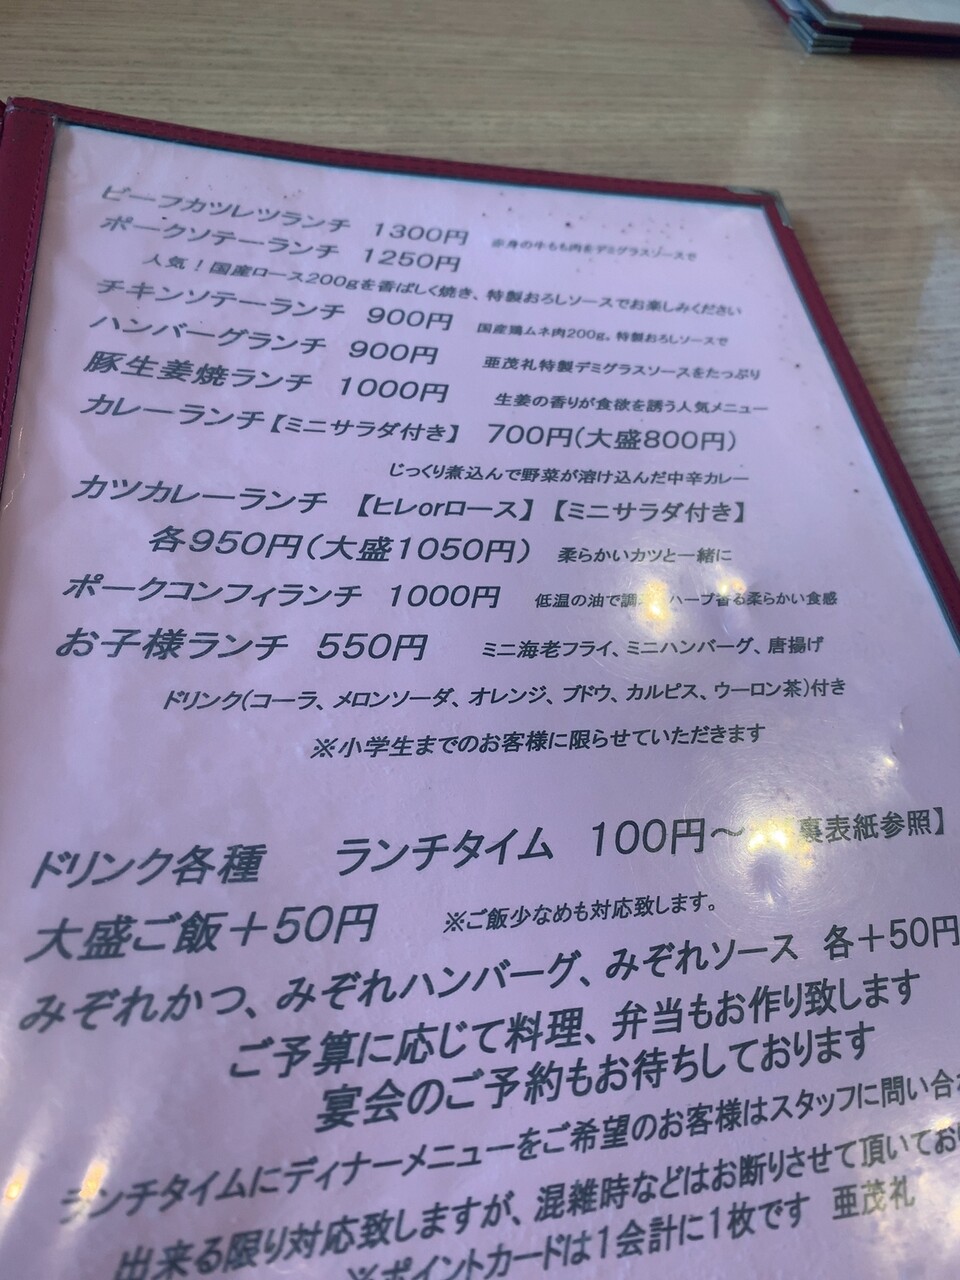 ビーフカツレツランチ 1300円 赤身の牛もも肉をデミグラスソースで
ポークソテーランチ 1250円
人気！国産ロース200gを香ばしく焼き、特製おろしソースでお楽しみください
チキンソテーランチ 900円 国産鶏ムネ肉200g。特製おろしソースで
ハンバーグランチ 900円 亜茂礼特製デミグラスソースをたっぷり
豚生姜焼ランチ 1000円 生姜の香りが食欲を誘う人気メニュー
カレーランチ【ミニサラダ付き】 700円(大盛800円)
じっくり煮込んで野菜が溶け込んだ中辛カレー
カツカレーランチ 【ヒレorロース】【ミニサラダ付き】
各950円(大盛1050円) 柔らかいカツと一緒に
ポークコンフィランチ 1000円 低温の油で調 ハーブ香る柔らかい食感
お子様ランチ 550円 ミニ海老フライ、ミニハンバーグ、唐揚げ
ドリンク(コーラ、メロンソーダ、オレンジ、ブドウ、カルピス、ウーロン茶)付き
※小学生までのお客様に限らせていただきます
ドリンク各種 ランチタイム 100円～ 裏表紙参照】
大盛ご飯＋50円 ※ご飯少なめも対応致します。
みぞれかつ、みぞれハンバーグ、みぞれソース 各＋50円
ご予算に応じて料理、弁当もお作り致します
宴会のご予約もお待ちしております
ランチタイムにディナーメニューをご希望のお客様はスタッフに問い合
出来る限り対応致しますが、混雑時などはお断りさせて頂いてお
※ポイントカードは１会計に１枚です 亜茂礼